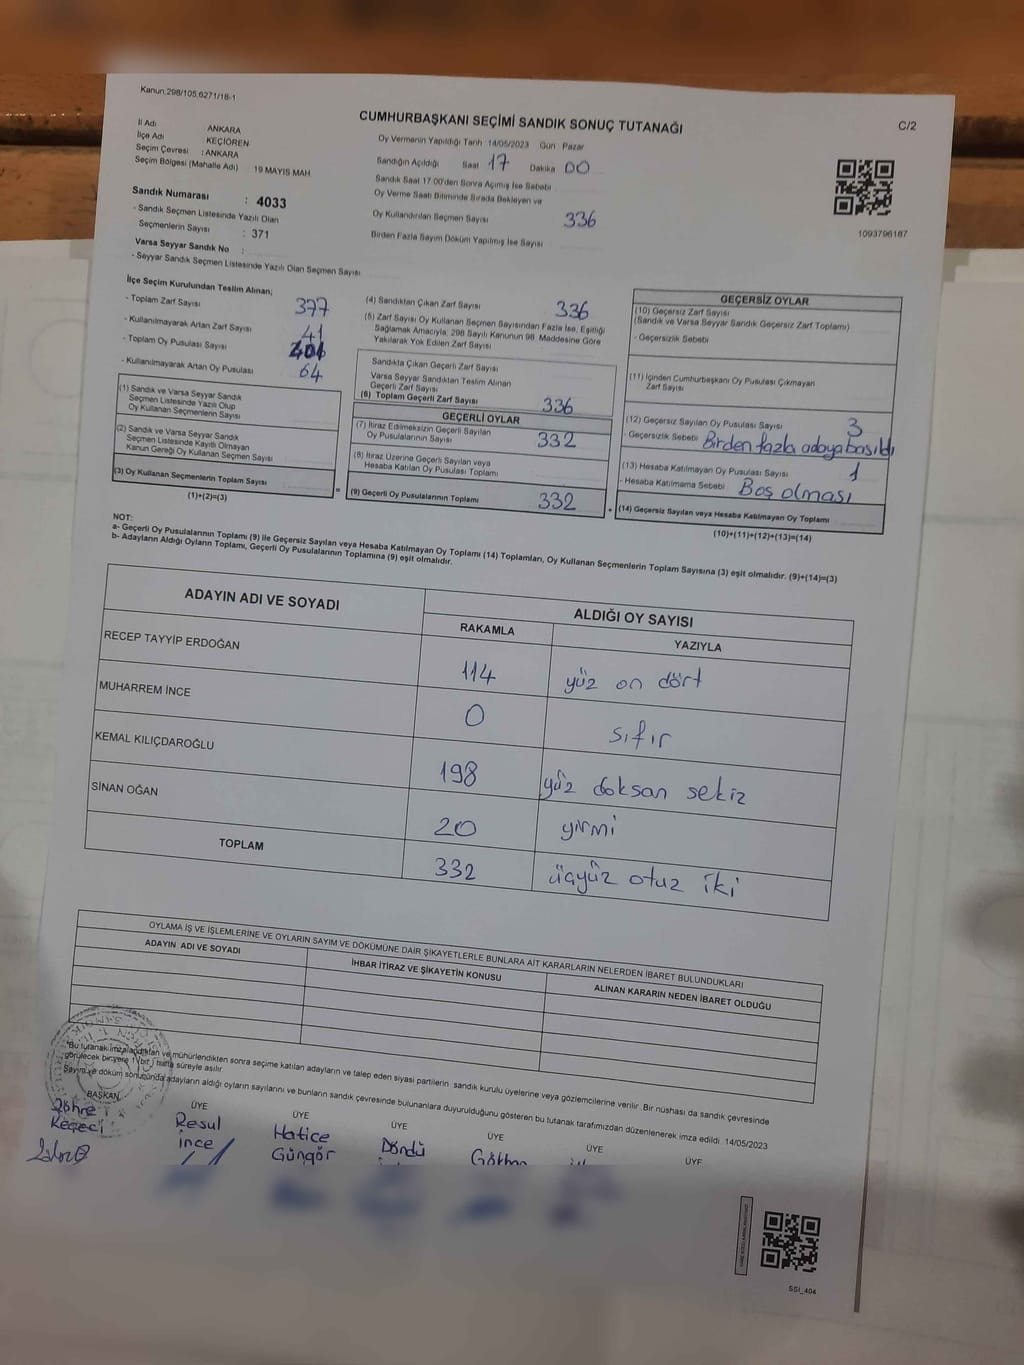 Kanun:298/105,6271/18-1
CUMHURBAŞKANI SEÇİMİ SANDIK SONUÇ TUTANAĞI
C/2
İl Adı ANKARA
İlçe Adı KEÇİÖREN
Seçim Çevresi : ANKARA
Seçim Bölgesi (Mahalle Adı) : 19 MAYIS MAH
Sandık Numarası : 4033
- Sandık Seçmen Listesinde Yazılı Olan
Seçmenlerin Sayısı : 371
Varsa Seyyar Sandık No :
- Seyyar Sandık Seçmen Listesinde Yazılı Olan Seçmen Sayısı
Oy Vermenin Yapıldığı Tarih 14/05/2023 Gün Pazar
Sandığın Açıldığı Saat 17 Dakika 00
Sandık Saat 17:00'den Sonra Açılmış İse Sebebi
Oy Verme Saati Bitiminde Sırada Bekleyen ve
Oy Kullandırılan Seçmen Sayısı 336
Birden Fazla Sayım Döküm Yapılmış İse Sayısı
1093796187
İlçe Seçim Kurulundan Teslim Alınan;
- Toplam Zarf Sayısı 377
- Kullanılmayarak Artan Zarf Sayısı 41
- Toplam Oy Pusulası Sayısı
- Kullanılmayarak Artan Oy Pusulası 64
(1) Sandık ve Varsa Seyyar Sandık
Seçmen Listesinde Yazılı Olup
Oy Kullanan Seçmenlerin Sayısı
(2) Sandık ve Varsa Seyyar Sandık
Seçmen Listesinde Kayıtlı Olmayan
Kanun Gereği Oy Kullanan Seçmen Sayısı
(3) Oy Kullanan Seçmenlerin Toplam Sayısı
(1)+(2)=(3)
(4) Sandıktan Çıkan Zarf Sayısı 336
(5) Zarf Sayısı Oy Kullanan Seçmen Sayısından Fazla İse, Eşitliği
Sağlamak Amacıyla, 298 Sayılı Kanunun 98. Maddesine Göre
Yakılarak Yok Edilen Zarf Sayısı
Sandıkta Çıkan Geçerli Zarf Sayısı
Varsa Seyyar Sandıktan Teslim Alınan
Geçerli Zarf Sayısı
(6) Toplam Geçerli Zarf Sayısı 336
GEÇERLİ OYLAR
(7) İtiraz Edilmeksizin Geçerli Sayılan
Oy Pusulalarının Sayısı 332
(8) İtiraz Üzerine Geçerli Sayılan veya
Hesaba Katılan Oy Pusulası Toplamı
= (9) Geçerli Oy Pusulalarının Toplamı 332
GEÇERSİZ OYLAR
(10) Geçersiz Zarf Sayısı
(Sandık ve Varsa Seyyar Sandık Geçersiz Zarf Toplamı)
- Geçersizlik Sebebi
(11) İçinden Cumhurbaşkanı Oy Pusulası Çıkmayan
Zarf Sayısı
(12) Geçersiz Sayılan Oy Pusulası Sayısı 3
- Geçersizlik Sebebi Birden fazla adaya basıldı
(13) Hesaba Katılmayan Oy Pusulası Sayısı 1
- Hesaba Katılmama Sebebi Boş olması
+ (14) Geçersiz Sayılan veya Hesaba Katılmayan Oy Toplamı
(10)+(11)+(12)+(13)=(14)
NOT:
a- Geçerli Oy Pusulalarının Toplamı (9) ile Geçersiz Sayılan veya Hesaba Katılmayan Oy Toplamı (14) Toplamları, Oy Kullanan Seçmenlerin Toplam Sayısına (3) eşit olmalıdır. (9)+(14)=(3)
b- Adayların Aldığı Oyların Toplamı, Geçerli Oy Pusulalarının Toplamına (9) eşit olmalıdır.
ADAYIN ADI VE SOYADI ALDIĞI OY SAYISI
RAKAMLA YAZIYLA
RECEP TAYYİP ERDOĞAN 114 yüz on dört
MUHARREM İNCE 0 sıfır
KEMAL KILIÇDAROĞLU 198 yüz doksan sekiz
SİNAN OĞAN 20 yirmi
TOPLAM 332 üçyüz otuz iki
OYLAMA İŞ VE İŞLEMLERİNE VE OYLARIN SAYIM VE DÖKÜMÜNE DAİR ŞİKAYETLERLE BUNLARA AİT KARARLARIN NELERDEN İBARET BULUNDUKLARI
ADAYIN ADI VE SOYADI İHBAR İTİRAZ VE ŞİKAYETİN KONUSU ALINAN KARARIN NEDEN İBARET OLDUĞU
"Bu tutanak imzalandıktan ve mühürlendikten sonra seçime katılan adayların ve talep eden siyasi partilerin sandık kurulu üyelerine veya gözlemcilerine verilir. Bir nüshası da sandık çevresinde
görülecek bir yere 1 (bir) hafta süreyle asılır.
Sayım ve döküm sonucunda adayların aldığı oyların sayılarını ve bunların sandık çevresinde bulunanlara duyurulduğunu gösteren bu tutanak tarafımızdan düzenlenerek imza edildi. 14/05/2023
BAŞKAN ÜYE ÜYE ÜYE ÜYE ÜYE ÜYE
Zöhre Keçeci
Resul İnce
Hatice Güngör
Döndü
Gökhan
SSİ_404